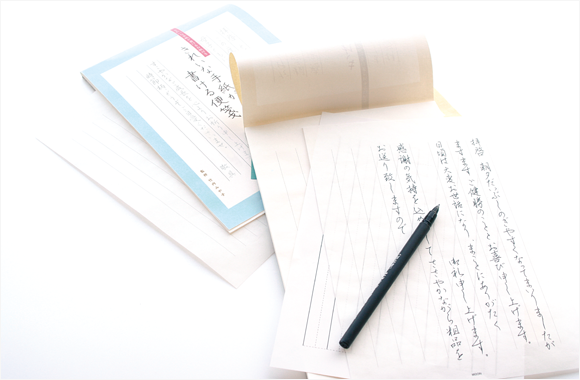 きれいな手紙が
書ける便箋
拝啓 朝夕だいぶしのぎやすくなってまいりましたが
ますますご健勝のこととお喜び申し上げます。
日頃は大変お世話になり まことにありがたく
御礼申し上げます。
感謝の気持を込 して ささやかながら粗品を
お送り致しますので